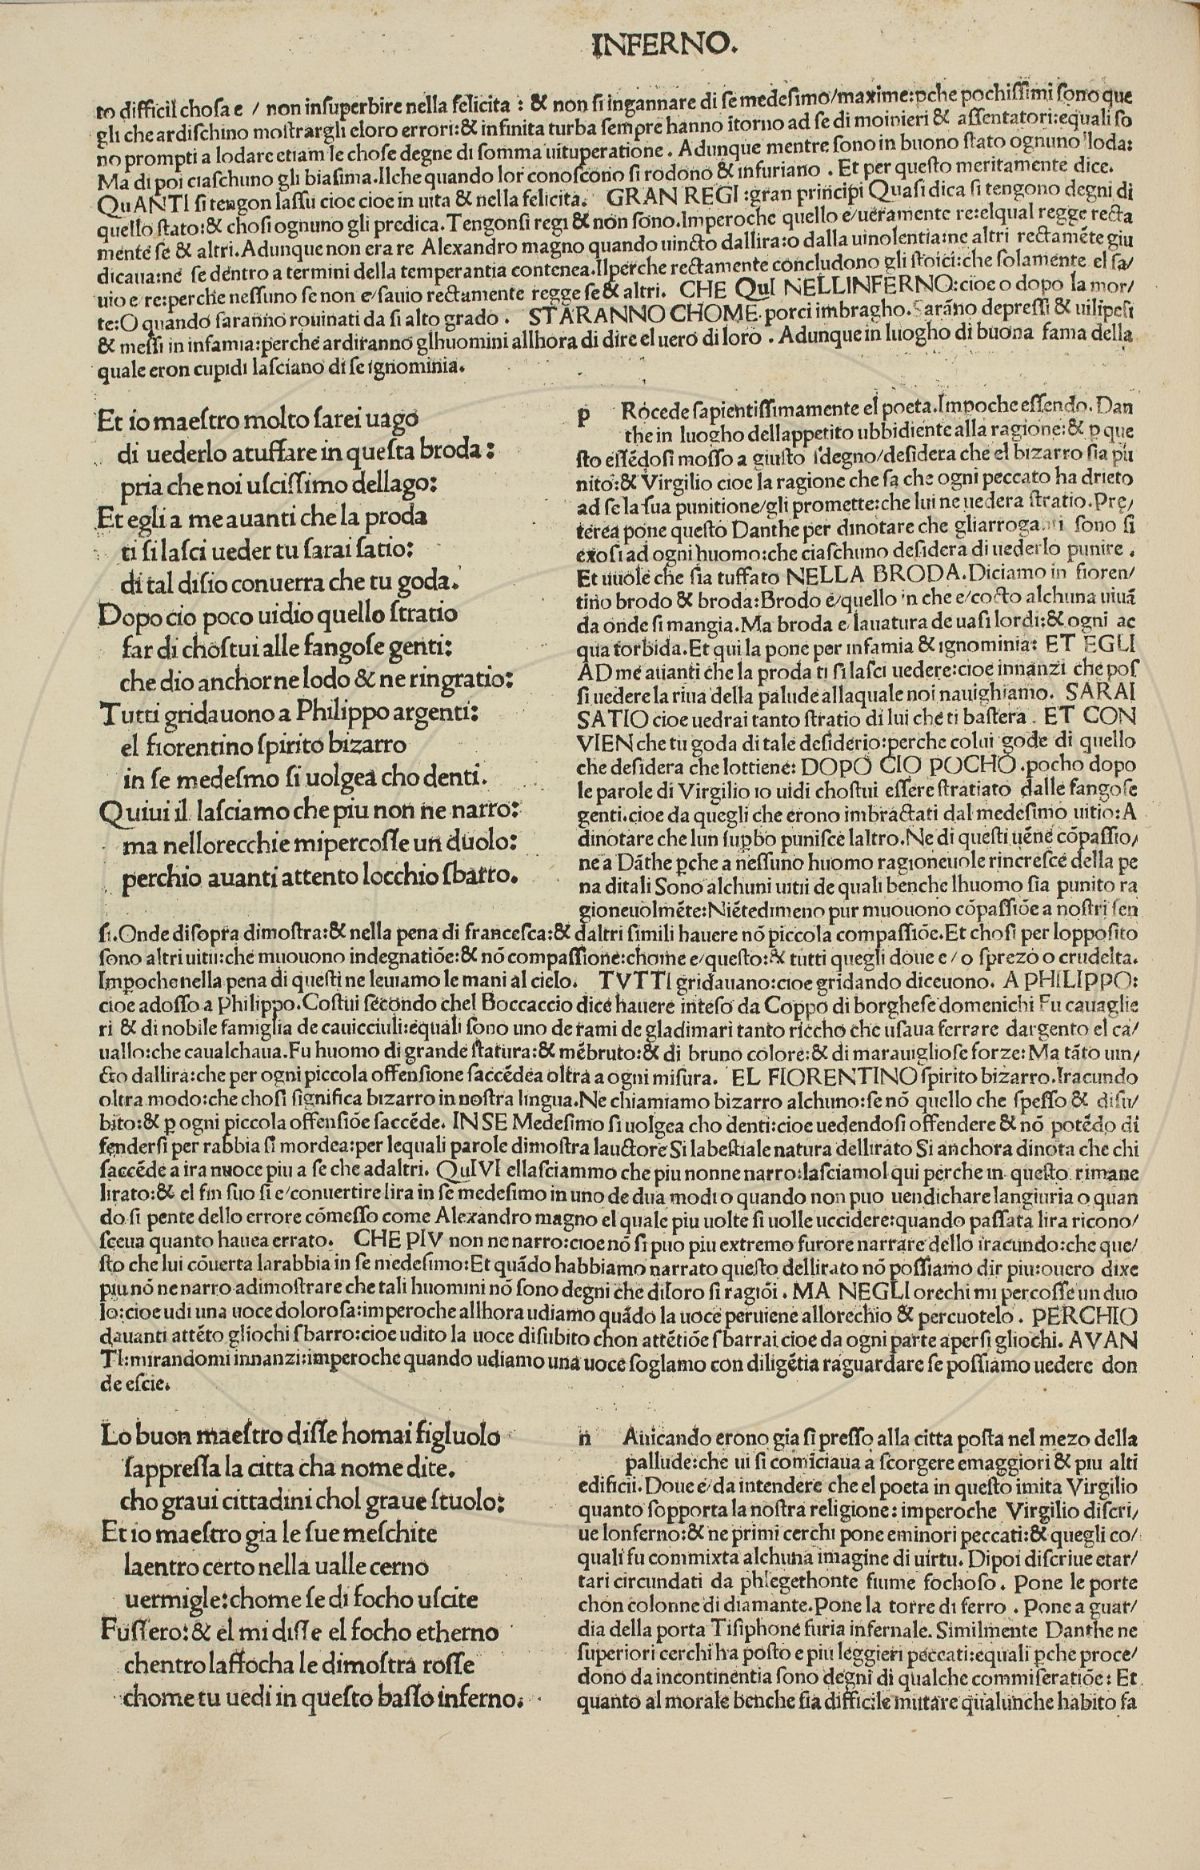 INFERNO.
to difficil chosa e / non insuperbire nella felicita : & non si ingannare di se medesimo/maxime:ꝑche pochissimi sono que
gli che ardischino mostrargli eloro errori:& infinita turba sempre hanno ītorno ad se di moinieri & assentatori:equali so
no prompti a lodare etiam le chose degne di somma uituperatione . Adunque mentre sono in buono stato ognuno loda:
Ma di poi ciaschuno gli biasima.Ilche quando lor conoscono si rodono & infuriano . Et per questo meritamente dice.
QuANTI si tengon lassu cioe cioe in uita & nella felicita. GRAN REGI :gran principi Quasi dica si tengono degni di
quello stato:& chosi ognuno gli predica.Tengonsi regi & non sono.Imperoche quello e/ueramente re:elqual regge recta
mente se & altri.Adunque non era re Alexandro magno quando uincto dallira:o dalla uinolentia:ne altri rectamēte giu
dicaua:ne se dentro a termini della temperantia contenea.Ilperche rectamente concludono gli stoici:che solamente el sa/
uio e re:perche nessuno se non e/sauio rectamente regge se & altri. CHE QuI NELLINFERNO:cioe o dopo la mor/
te:O quando saranno rouinati da si alto grado . STARANNO CHOME porci imbragho.Sarāno depressi & uilipesi
& messi in infamia:perche ardiranno glhuomini allhora di dire el uero di loro . Adunque in luogho di buona fama della
quale eron cupidi lasciano di se ignominia.
Et io maestro molto sarei uago
di uederlo atuffare in questa broda :
pria che noi uscissimo dellago:
Et egli a me auanti che la proda
ti si lasci ueder tu sarai satio:
di tal disio conuerra che tu goda.
Dopo cio poco uidio quello stratio
far di chostui alle fangose genti:
che dio anchor ne lodo & ne ringratio:
Tutti gridauono a Philippo argenti:
el fiorentino spirito bizarro
in se medesmo si uolgea cho denti.
Quiui il lasciamo che piu non ne narro:
ma nellorecchie mi percosse un duolo:
perchio auanti attento locchio sbarro.
p Rocede sapientissimamente el poeta.Impoche essendo. Dan
the in luogho dellappetito ubbidiente alla ragione:& ꝑ que
sto essēdosi mosso a giusto sdegno/desidera che el bizarro sia pu
nito:& Virgilio cioe la ragione che sa che ogni peccato ha drieto
ad se la sua punitione/gli promette:che lui ne uedera stratio.Prę/
terea pone questo Danthe per dinotare che gliarroganti sono si
exosi ad ogni huomo:che ciaschuno desidera di uederlo punire .
Et uuole che sia tuffato NELLA BRODA.Diciamo in fioren/
tino brodo & broda:Brodo e/quello in che e/cocto alchuna uiuā
da onde si mangia.Ma broda e/lauatura de uasi lordi:& ogni ac
qua torbida.Et qui la pone per infamia & ignominia: ET EGLI
AD me auanti che la proda ti si lasci uedere:cioe innanzi che pos
si uedere la riua della palude allaquale noi nauighiamo. SARAI
SATIO cioe uedrai tanto stratio di lui che ti bastera . ET CON
VIEN che tu goda di tale desiderio:perche colui gode di quello
che desidera che lottiene: DOPO CIO POCHO .pocho dopo
le parole di Virgilio io uidi chostui essere stratiato dalle fangose
genti.cioe da quegli che erono imbractati dal medesimo uitio:A
dinotare che lun suꝑbo punisce laltro.Ne di questi uēne cōpassio/
ne a Dāthe ꝑche a nessuno huomo ragioneuole rincresce della pe
na di tali Sono alchuni uitii de quali benche lhuomo sia punito ra
gioneuolmēte:Niētedimeno pur muouono cōpassiōe a nostri sen
si.Onde disopra dimostra:& nella pena di francesca:& daltri simili hauere nō piccola compassiōe.Et chosi per lopposito
sono altri uitii:che muouono indegnatiōe:& nō compassione:chome e/questo:& tutti quegli doue e/o sprezo o crudelta.
Impoche nella pena di questi ne leuiamo le mani al cielo. TVTTI gridauano:cioe gridando diceuono. A PHILIPPO:
cioe adosso a Philippo.Costui secondo chel Boccaccio dice hauere inteso da Coppo di borghese domenichi Fu cauaglie
ri & di nobile famiglia de cauicciuli:equali sono uno de rami de gladimari tanto riccho che usaua ferrare dargento el ca/
uallo:che caualchaua.Fu huomo di grande statura:& mēbruto:& di bruno colore:& di marauigliose forze: Ma tāto uin/
cto dallira:che per ogni piccola offensione saccēdea oltra a ogni misura. EL FIORENTINO spirito bizarro.Iracundo
oltra modo:che chosi significa bizarro in nostra lingua.Ne chiamiamo bizarro alchuno:se nō quello che spesso & disu/
bito:& ꝑ ogni piccola offensiōe saccēde. IN SE Medesimo si uolgea cho denti:cioe uedendosi offendere & nō potēdo di
fendersi per rabbia si mordea:per lequali parole dimostra lauctore Si labestiale natura dellirato Si anchora dinota che chi
saccēde a ira nuoce piu a se che adaltri. QuIVI ellasciammo che piu nonne narro:lasciamol qui perche in questo rimane
lirato:& el fin suo si e/conuertire lira in se medesimo in uno de dua modi o quando non puo uendichare langiuria o quan
do si pente dello errore cōmesso come Alexandro magno el quale piu uolte si uolle uccidere:quando passata lira ricono/
sceua quanto hauea errato. CHE PIV non ne narro:cioe nō si puo piu extremo furore narrare dello iracundo:che que/
sto che lui cōuerta larabbia in se medesimo:Et quādo habbiamo narrato questo dellirato nō possiamo dir piu:ouero dixe
piu nō ne narro adimostrare che tali huomini nō sono degni che diloro si ragiōi . MA NEGLI orechi mi percosse un duo
lo:cioe udi una uoce dolorosa:imperoche allhora udiamo quādo la uoce peruiene allorechio & percuotelo . PERCHIO
dauanti attēto gliochi sbarro:cioe udito la uoce disubito chon attētiōe sbarrai cioe da ogni parte apersi gliochi. AVAN
TI:mirandomi innanzi:imperoche quando udiamo una uoce sogliamo con diligētia raguardare se possiamo uedere don
de escie.
Lo buon maestro disse homai figluolo
sappressa la citta cha nome dite.
cho graui cittadini chol graue stuolo:
Et io maestro gia le sue meschite
laentro certo nella ualle cerno
uermigle:chome se di focho uscite
Fussero:& el mi disse el focho etherno
chentro laffocha le dimostra rosse
chome tu uedi in questo basso inferno.
n Auicando erono gia si presso alla citta posta nel mezo della
pallude:che ui si comīciaua a scorgere emaggiori & piu alti
edificii.Doue e/da intendere che el poeta in questo imita Virgilio
quanto sopporta la nostra religione: imperoche Virgilio discri/
ue lonferno:& ne primi cerchi pone eminori peccati:& quegli co/
quali fu commixta alchuna imagine di uirtu. Dipoi discriue etar/
tari circundati da phlegethonte fiume fochoso . Pone le porte
chon colonne di diamante.Pone la torre di ferro . Pone a guar/
dia della porta Tisiphone furia infernale. Similmente Danthe ne
superiori cerchi ha posto e piu leggieri peccati:equali ꝑche proce/
dono da incontinentia sono degni di qualche commiseratiōe: Et
quanto al morale benche sia difficile mutare qualunche habito fa